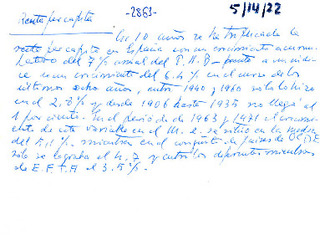 Renta per capita
-2863-
5/14/22
los 10 años se ha triplicado la
renta per capita en España con un crecimiento acumu-
lativo del 7% anual del P.N.B - frente a
un crecimiento del 6.4% en el curso de los
ultimos ocho años, entre 1940 y 1960 solo lo hizo
en el 2.0% y desde 1906 hasta 1935 no llegó al
1 por ciento. En el periodo de 1963 y 1971 el crecimi-
ento de esta variable en el M. C. se situó en la media
del 5,1%. mientras en el conjunto de paises de OCDE
solo se lograba el 4,7 y entre los diferentes miembros
de E.F.T.A el 3.5%.